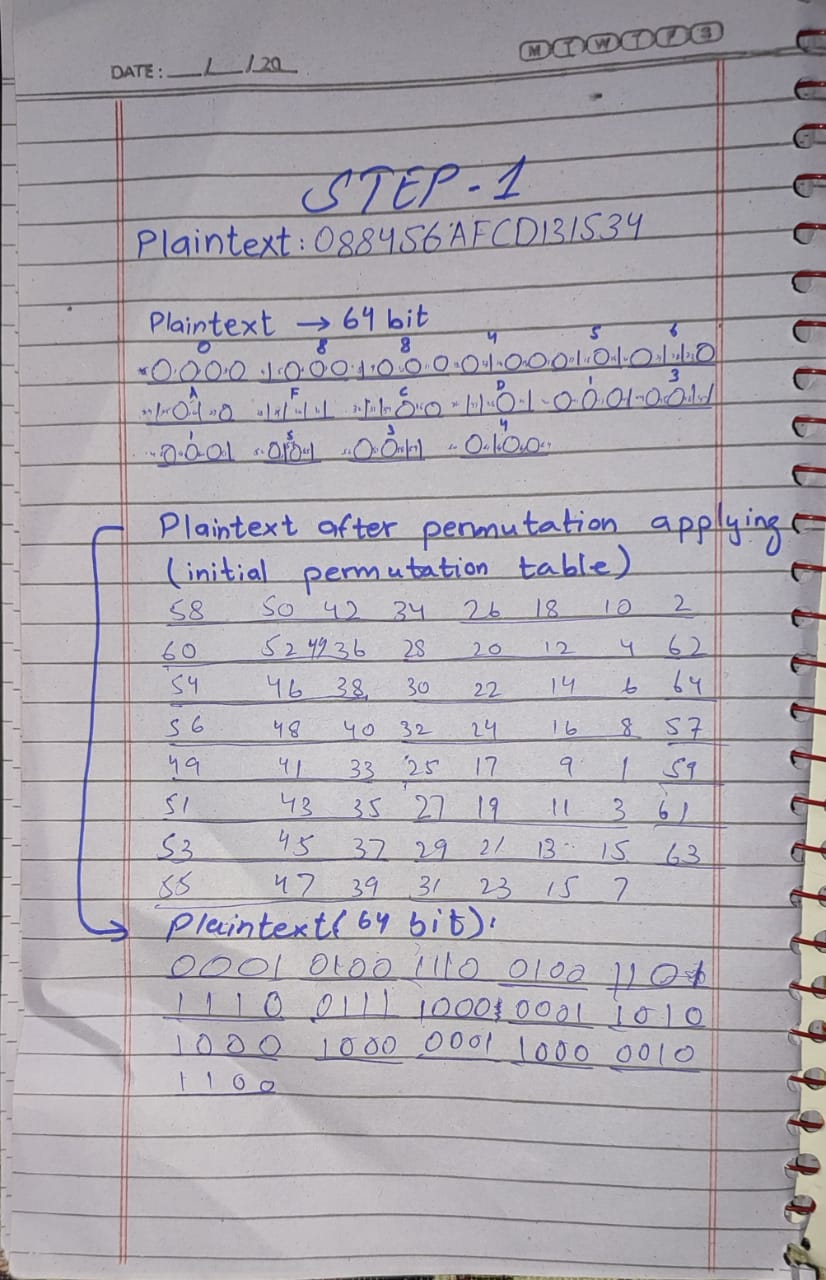 M T W T F S
DATE: __/__/20__
STEP-1
Plaintext: 088456AFCD131534
Plaintext → 64 bit
0 8 8 4 5 6
0000 1000 1000 0100 0101 0110
A F C D 1 3
1010 1111 1100 1101 0001 0011
1 5 3 4
0001 0101 0011 0100
Plaintext after permutation applying
(initial permutation table)
58 50 42 34 26 18 10 2
60 52 44 36 28 20 12 4 62
54 46 38 30 22 14 6 64
56 48 40 32 24 16 8 57
49 41 33 25 17 9 1 59
51 43 35 27 19 11 3 61
53 45 37 29 21 13 15 63
55 47 39 31 23 15 7
Plaintext(64 bit):
0001 0100 1110 0100 1101
1110 0111 1000 0001 1010
1000 1000 0001 1000 0010
1100